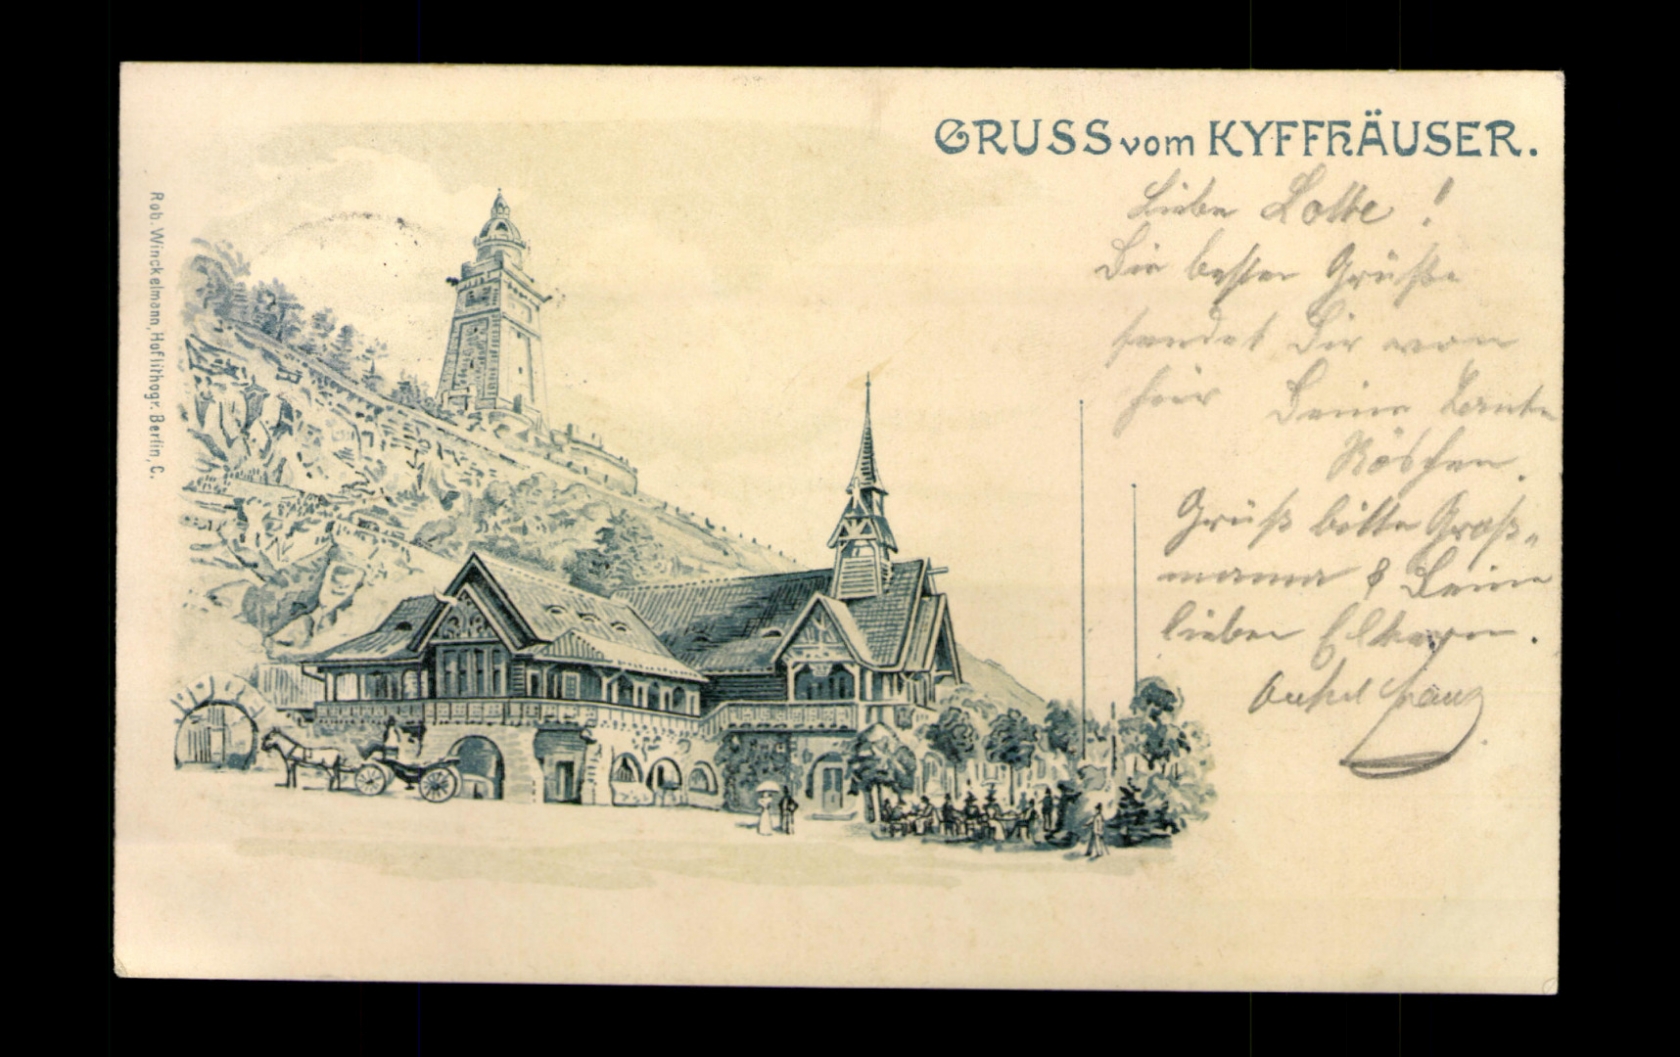 GRUSS vom KYFFHÄUSER.
Liebe Lotte !
Die besten Grüße
sendet Dir von
hier Deine Tante
Röschen.
Grüß bitte Groß-
mama & Deine
lieben Eltern.
Onkel Franz
Rob. Winckelmann, Hoflithogr. Berlin, C.